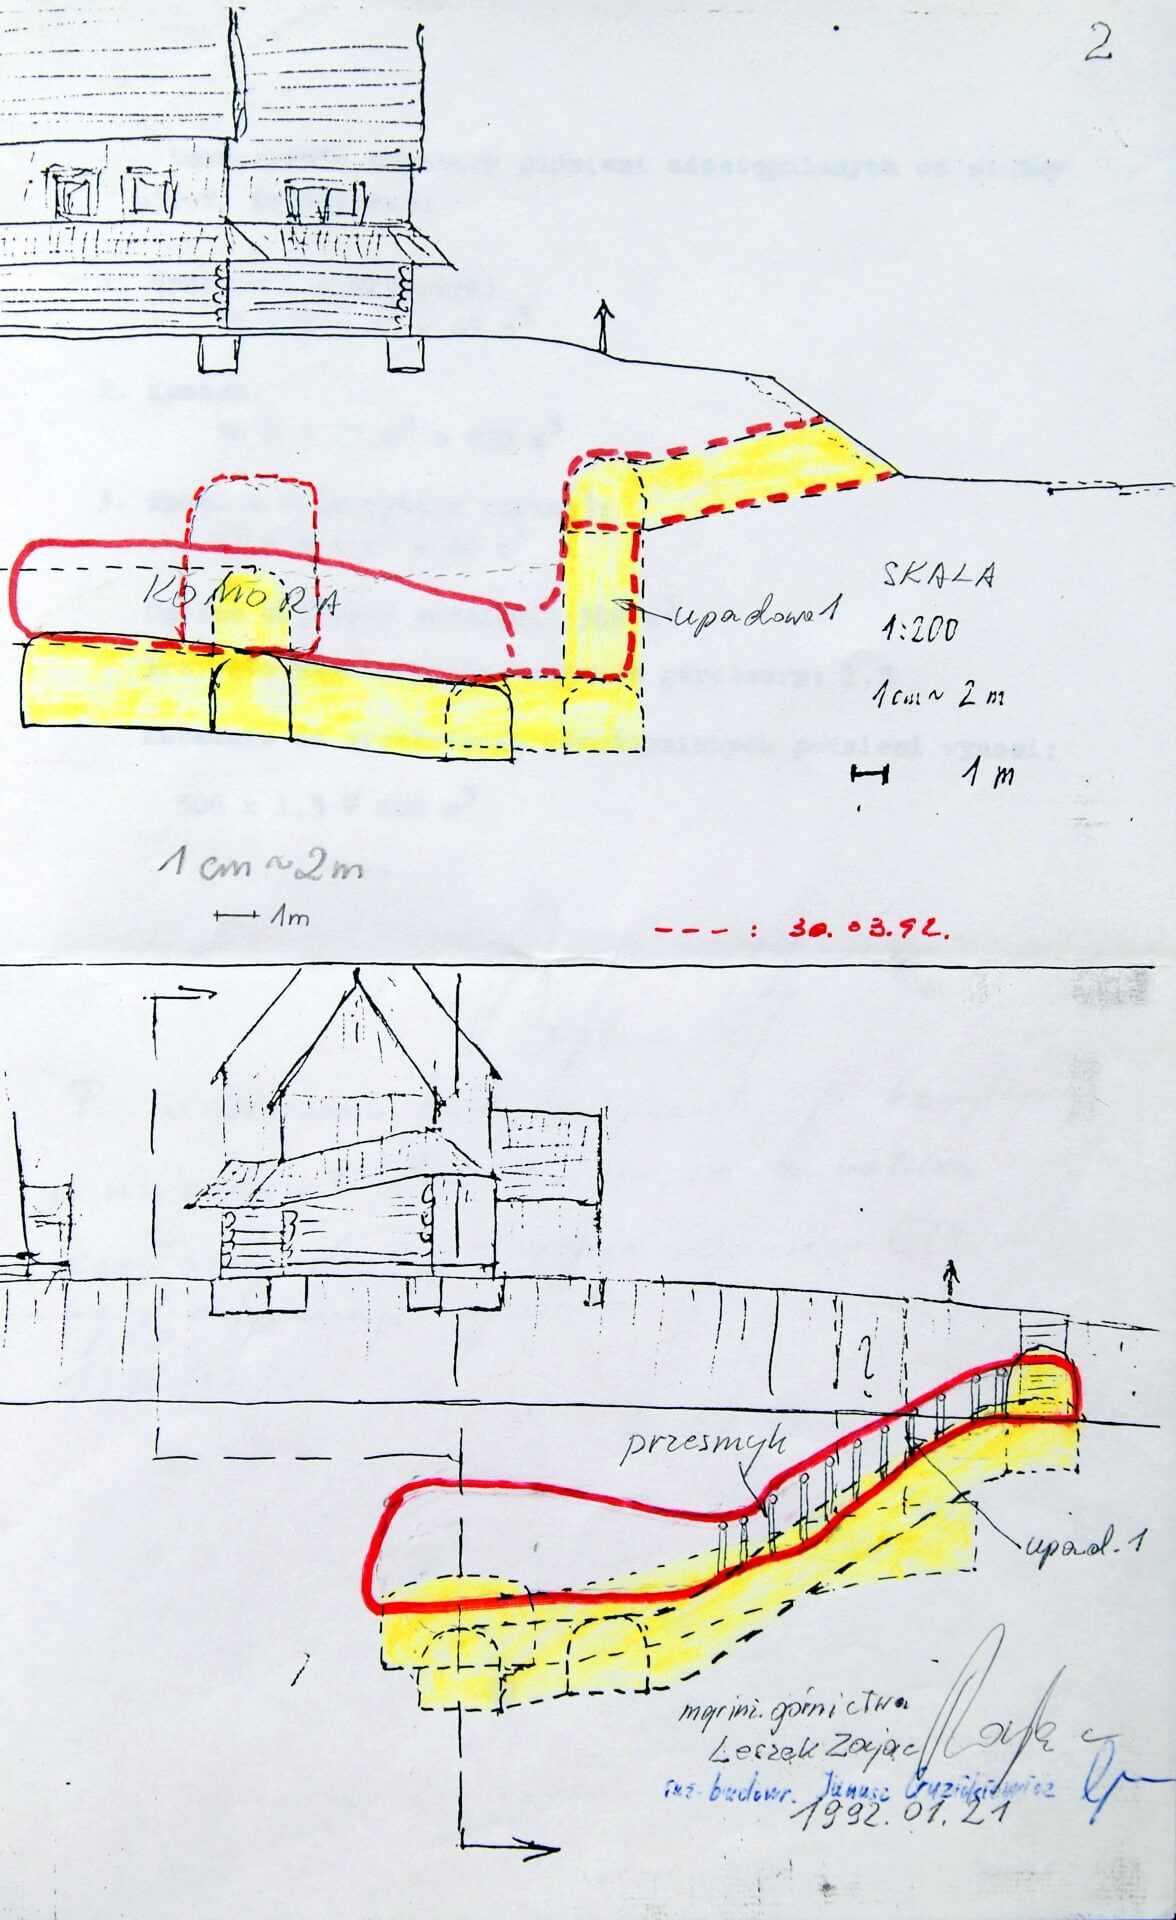 2
KOMORA
upadowa 1
SKALA
1:200
1cm ~ 2 m
1 m
1 cm ~ 2m
1m
--- : 30.03.92.
?
przesmyk
upad. 1
mgr inż. górnictwa
Leszek Zając
inż. budowr. Janusz
1992.01.21